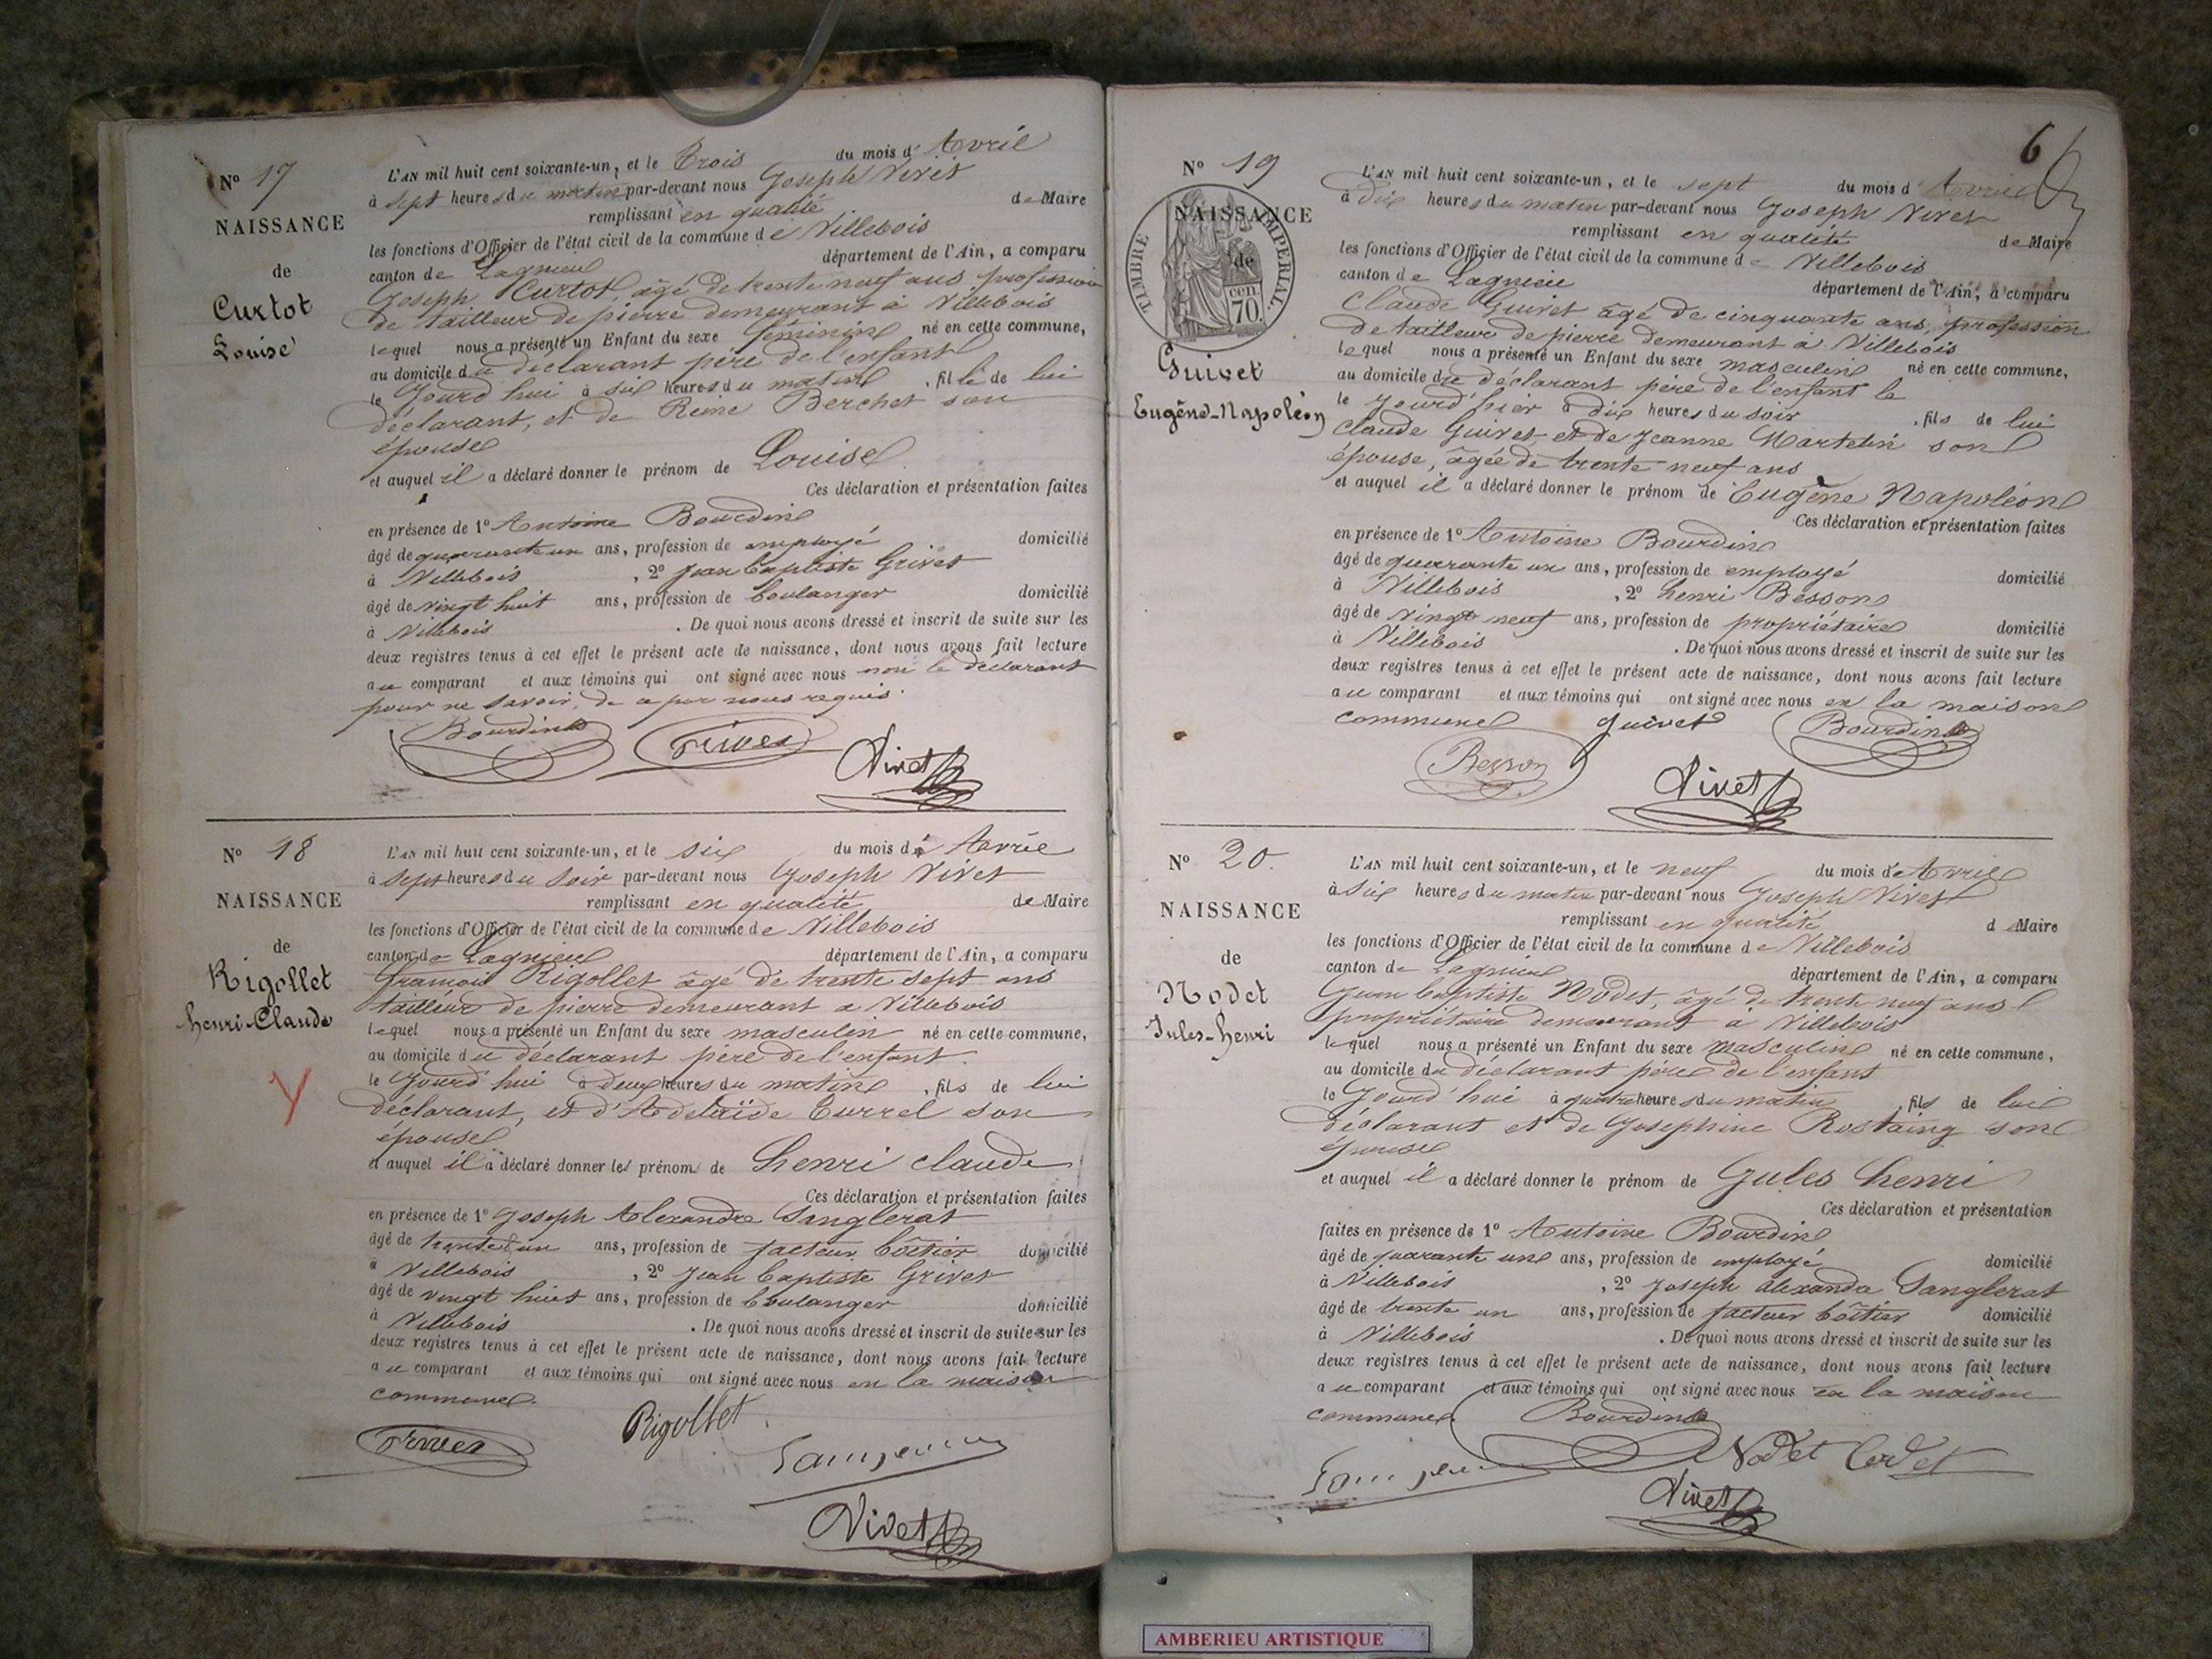 Nº 17
NAISSANCE
de
Curtot
Louise
L'AN mil huit cent soixante-un, et le Trois du mois d' Avril
à sept heures du matin par-devant nous Joseph Vivet
remplissant en qualité de Maire
les fonctions d'Officier de l'état civil de la commune de Villebois
canton de Lagnieu département de l'Ain, a comparu
Joseph Curtot, âgé de trente neuf ans profession
de tailleur de pierre demeurant à Villebois
lequel nous a présenté un Enfant du sexe féminin né en cette commune,
au domicile du déclarant père de l'enfant
le Jourd'hui à six heures du matin , fille de lui
déclarant, et de Reine Berchet son
épouse
et auquel il a déclaré donner le prénom de Louise
Ces déclaration et présentation faites
en présence de 1º Antoine Bourdin
âgé de quarante un ans, profession de employé domicilié
à Villebois , 2º Jean Baptiste Grivet
âgé de vingt huit ans, profession de boulanger domicilié
à Villebois . De quoi nous avons dressé et inscrit de suite sur les
deux registres tenus à cet effet le présent acte de naissance, dont nous avons fait lecture
au comparant et aux témoins qui ont signé avec nous non le déclarant
pour ne savoir, de a par nous requis.
Bourdin Grivet
Vivet
Nº 18
NAISSANCE
de
Rigollet
henri-Claude
L'AN mil huit cent soixante-un, et le six du mois d' Avril
à sept heures du soir par-devant nous Joseph Vivet
remplissant en qualité de Maire
les fonctions d'Officier de l'état civil de la commune de Villebois
canton de Lagnieu département de l'Ain, a comparu
françois Rigollet âgé de trente sept ans
tailleur de pierre demeurant a Villebois
lequel nous a présenté un Enfant du sexe masculin né en cette commune,
au domicile du déclarant père de l'enfant.
le Jourd'hui à deux heures du matin , fils de lui
déclarant, et d'Adelaïde Currel son
épouse
et auquel il a déclaré donner les prénoms de henri claude
Ces déclaration et présentation faites
en présence de 1º Joseph Alexandre Sanglerat
âgé de trente un ans, profession de facteur boîtier domicilié
à Villebois , 2º Jean Baptiste Grivet
âgé de vingt huit ans, profession de boulanger domicilié
à Villebois . De quoi nous avons dressé et inscrit de suite sur les
deux registres tenus à cet effet le présent acte de naissance, dont nous avons fait lecture
au comparant et aux témoins qui ont signé avec nous en la maison
commune.
Grivet Rigollet
Vivet
6
Nº 19
NAISSANCE
de
TIMBRE IMPERIAL.
cen.
70.
Guivet
Eugène-Napoléon
L'AN mil huit cent soixante-un, et le sept du mois d' Avril
à dix heures du matin par-devant nous Joseph Vivet
remplissant en qualité de Maire
les fonctions d'Officier de l'état civil de la commune de Villebois
canton de Lagnieu département de l'Ain, a comparu
Claude Guivet âgé de cinquante ans, profession
de tailleur de pierre demeurant à Villebois
lequel nous a présenté un Enfant du sexe masculin né en cette commune,
au domicile du déclarant père de l'enfant le
le jourd'hier à dix heures du soir , fils de lui
Claude Guivet et de Jeanne Martelin son
épouse, âgée de trente neuf ans
et auquel il a déclaré donner le prénom de Eugène Napoléon
Ces déclaration et présentation faites
en présence de 1º Antoine Bourdin
âgé de quarante un ans, profession de employé domicilié
à Villebois , 2º henri Besson
âgé de vingt neuf ans, profession de propriétaire domicilié
à Villebois . De quoi nous avons dressé et inscrit de suite sur les
deux registres tenus à cet effet le présent acte de naissance, dont nous avons fait lecture
au comparant et aux témoins qui ont signé avec nous en la maison
commune Guivet Bourdin
Besson
Vivet
Nº 20
NAISSANCE
de
Nodet
Jules-henri
L'AN mil huit cent soixante-un, et le neuf du mois de Avril
à six heures du matin par-devant nous Joseph Vivet
remplissant en qualité de Maire
les fonctions d'Officier de l'état civil de la commune de Villebois
canton de Lagnieu département de l'Ain, a comparu
Jean baptiste Nodet, âgé de trente neuf ans
propriétaire demeurant à Villebois
lequel nous a présenté un Enfant du sexe masculin né en cette commune,
au domicile du déclarant père de l'enfant
le Jourd'hui à quatre heures du matin , fils de lui
déclarant et de Josephine Rostaing son
épouse
et auquel il a déclaré donner le prénom de Jules henri
Ces déclaration et présentation
faites en présence de 1º Antoine Bourdin
âgé de quarante un ans, profession de employé domicilié
à Villebois , 2º Joseph alexandre Sanglerat
âgé de trente un ans, profession de facteur boîtier domicilié
à Villebois . De quoi nous avons dressé et inscrit de suite sur les
deux registres tenus à cet effet le présent acte de naissance, dont nous avons fait lecture
au comparant et aux témoins qui ont signé avec nous en la maison
commune. Bourdin
Nodet Cadet
Vivet
AMBERIEU ARTISTIQUE